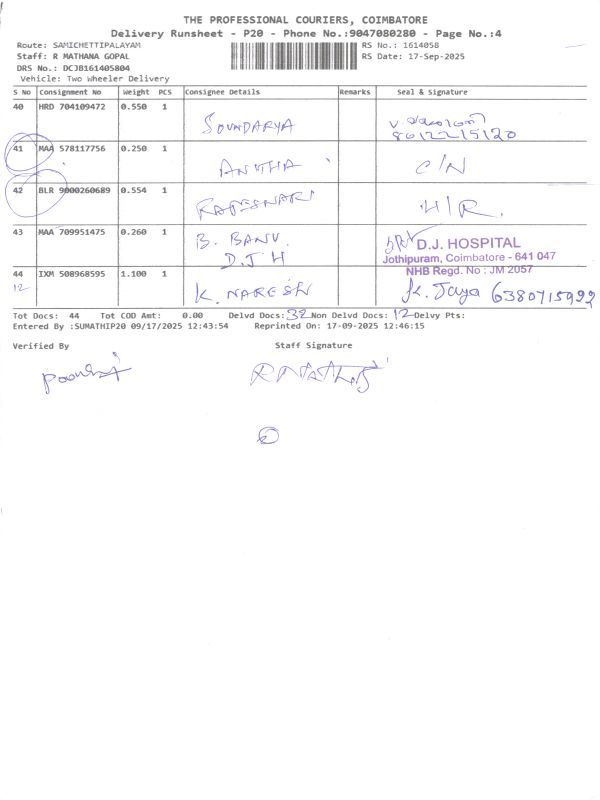 THE PROFESSIONAL COURIERS, COIMBATORE
Delivery Runsheet - P20 - Phone No.:9047080280 - Page No.:4
Route: SAMICHETTIPALAYAM
RS No.: 1614058
Staff: R MATHANA GOPAL
RS Date: 17-Sep-2025
DRS No.: DCJB161405804
Vehicle: Two Wheeler Delivery
S No Consignment No Weight PCS Consignee Details Remarks Seal & Signature
40 HRD 704109472 0.550 1
SOUNDARYA
8612215120
41 MAA 578117756 0.250 1
ANITHA C/N
42 BLR 9000260689 0.554 1
H/R.
43 MAA 709951475 0.260 1 B. BANU.
D.J.H
D.J. HOSPITAL
Jothipuram, Coimbatore - 641 047
NHB Regd. No : JM 2057
44 IXM 508968595 1.100 1
12 K. NARESH K. Jaya 6380715992
Tot Docs: 44 Tot COD Amt: 0.00 Delvd Docs: 32 Non Delvd Docs: 12 Delvy Pts:
Entered By :SUMATHIP20 09/17/2025 12:43:54 Reprinted On: 17-09-2025 12:46:15
Verified By Staff Signature